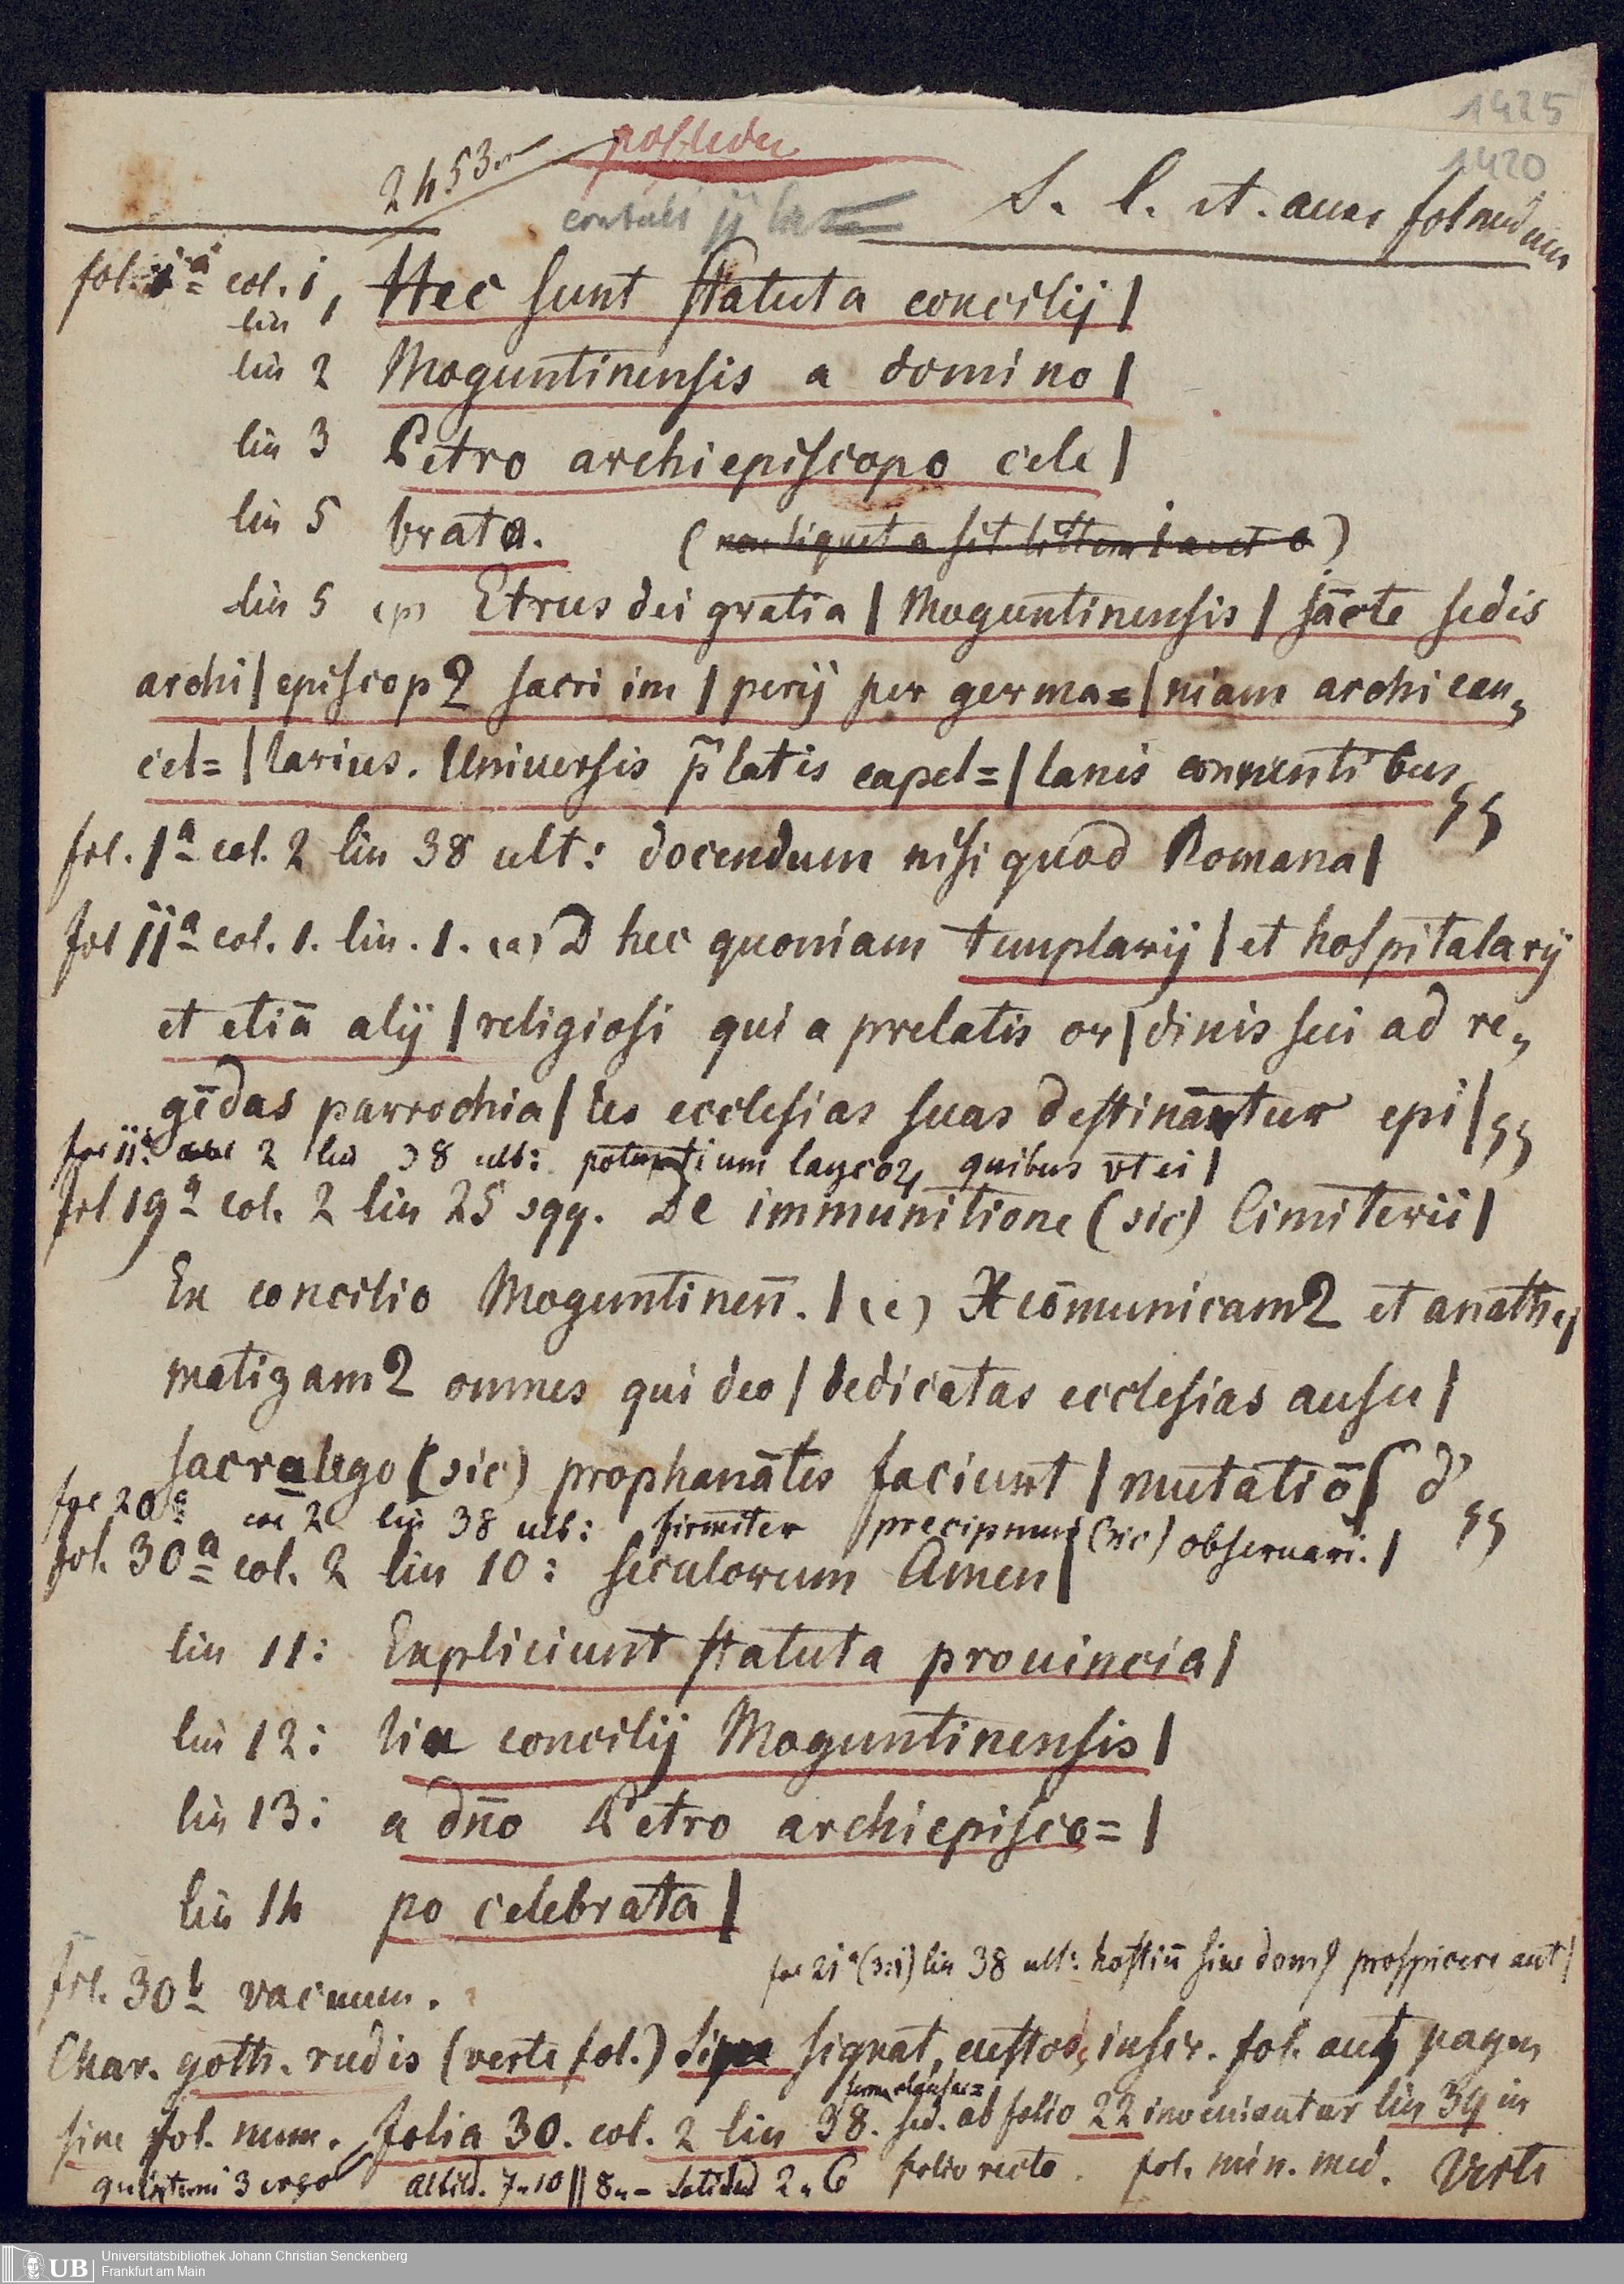 1425
1420
2453
S. l. et. anni fol med min
fol. ia col. i, Hec sunt statuta concilij |
lin 1
lin 2 Moguntinensis a domino |
lin 3 Petro archiepiscopo cele |
lin 5 brata. (non liquet a sit littera i a et o)
lin 5 (p) Etrus dei gratia | Moguntinensis | sācte sedis
archi | episcopꝰ sacri im | perij per germa= | niam archi can„
cel= | larius. Universis p̄latis capel= | lanis conventibus
fol. 1a col. 2 lin 38 ult: docendum nisi quod Romana |
fol iia col. 1. lin. 1. (a) D hec quoniam templarij | et hospitalarij
et etiā alij | religiosi qui a prelatis or | dinis sui ad re„
gēdas parrochia | les ecclesias suas destinantur epi |
fol ii. col 2 lin 38 ult: potentium laycoꝝ quibus vt ei |
fol 19a col. 2 lin 25 sqq. De immunitione (sic) Cimiterii |
Ex concilio Moguntineñ. | (e) X cōmunicamꝰ et anathe |
matizamꝰ omnes qui deo | dedicatas ecclesias ausu |
sacralego (sic) prophanātes faciunt | mutatiōs d'
fol 20a col 2 lin 38 ult: firmiter precipmus (sic) observari. |
fol. 30a col. 2 lin 10: seculorum Amen |
lin 11: Expliciunt statuta provincia |
lin 12: lia concilij Moguntinensis |
lin 13: a dño Petro archiepisco= |
lin 14 po celebrata |
fol 21a (3:i) lin 38 ult: hostiū sine domꝰ prospicere aut |
fol. 30b vacuum.
Char. goth. rudis (verte fol.) sine signat, custod, inscr. fol. aut pagin
sine fol. num. folia 30. col. 2 lin 38. sed. ab folio 22 inveniantur lin 39 in
folio recto. fol. min. med. Verte
quinterni 3 ergo 7„10 || 8„ 2„6
UB Universitätsbibliothek Johann Christian Senckenberg
Frankfurt am Main